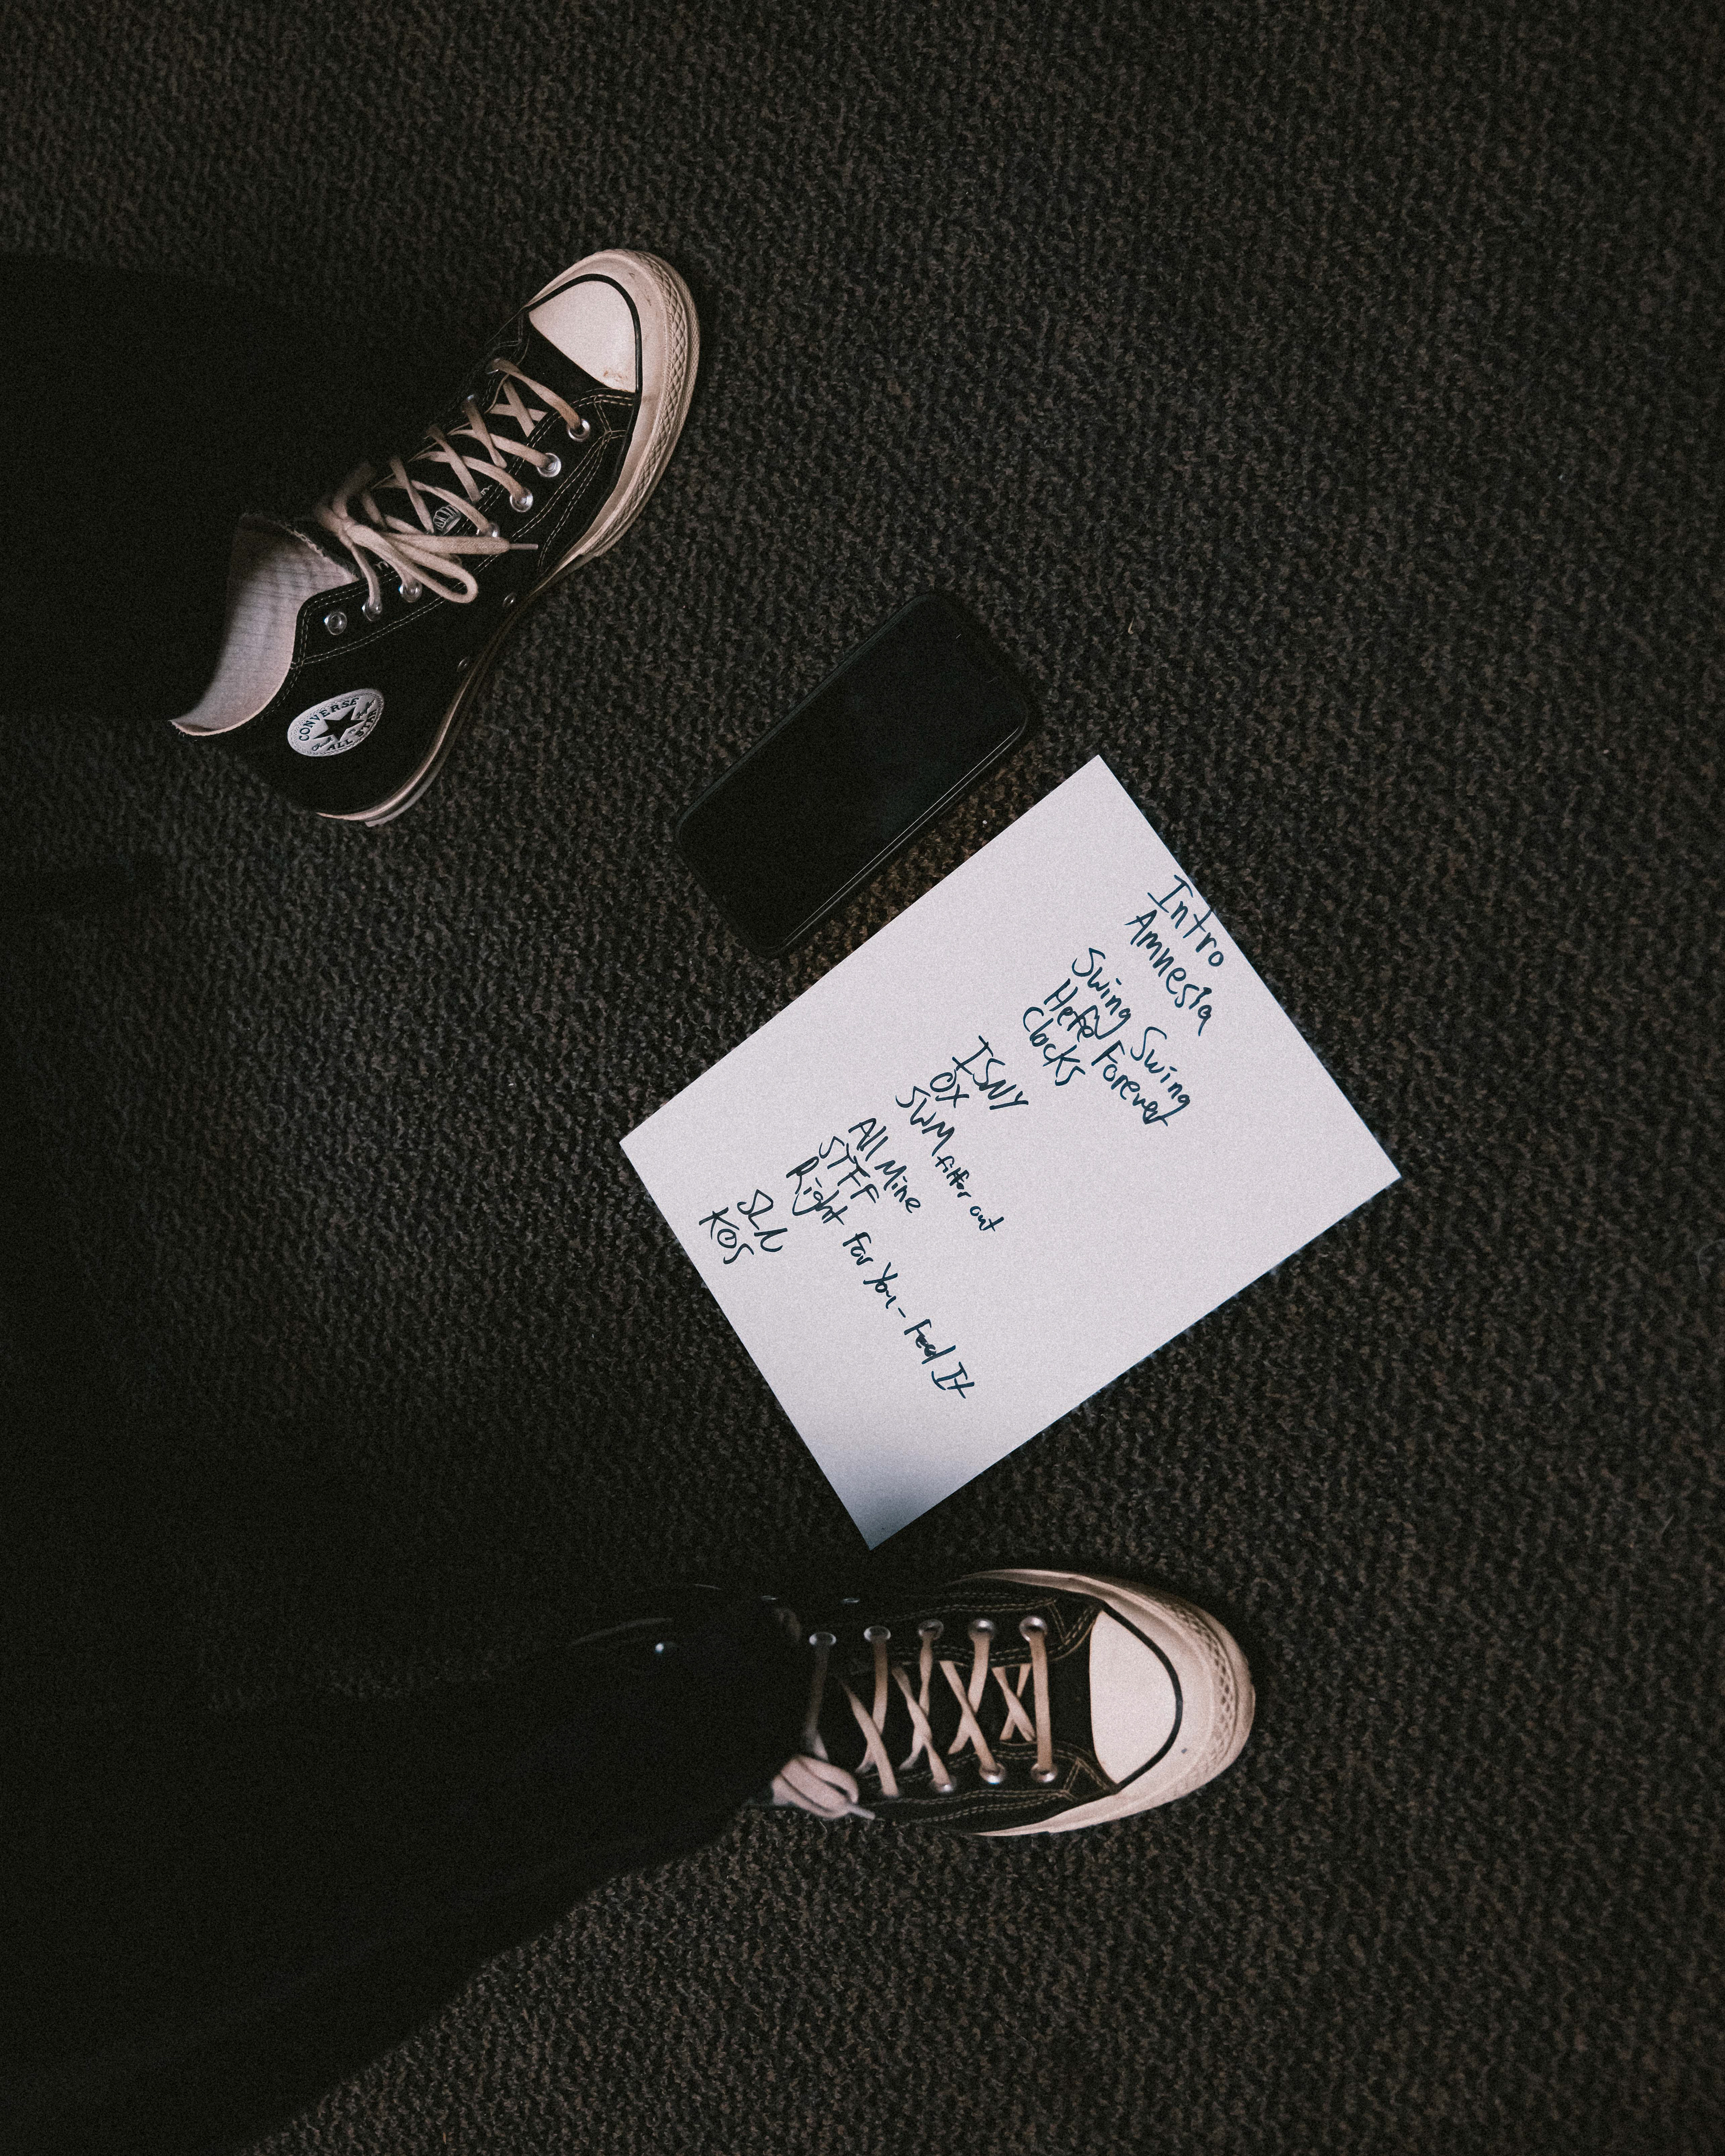 CONVERSE
ALL STAR
Intro
Amnesia
Swing Swing
Here Forever
Clocks
ISNY
OX
SWM fitter out
All Mine
STFF
Right For You - Feel It
SLN
KOS